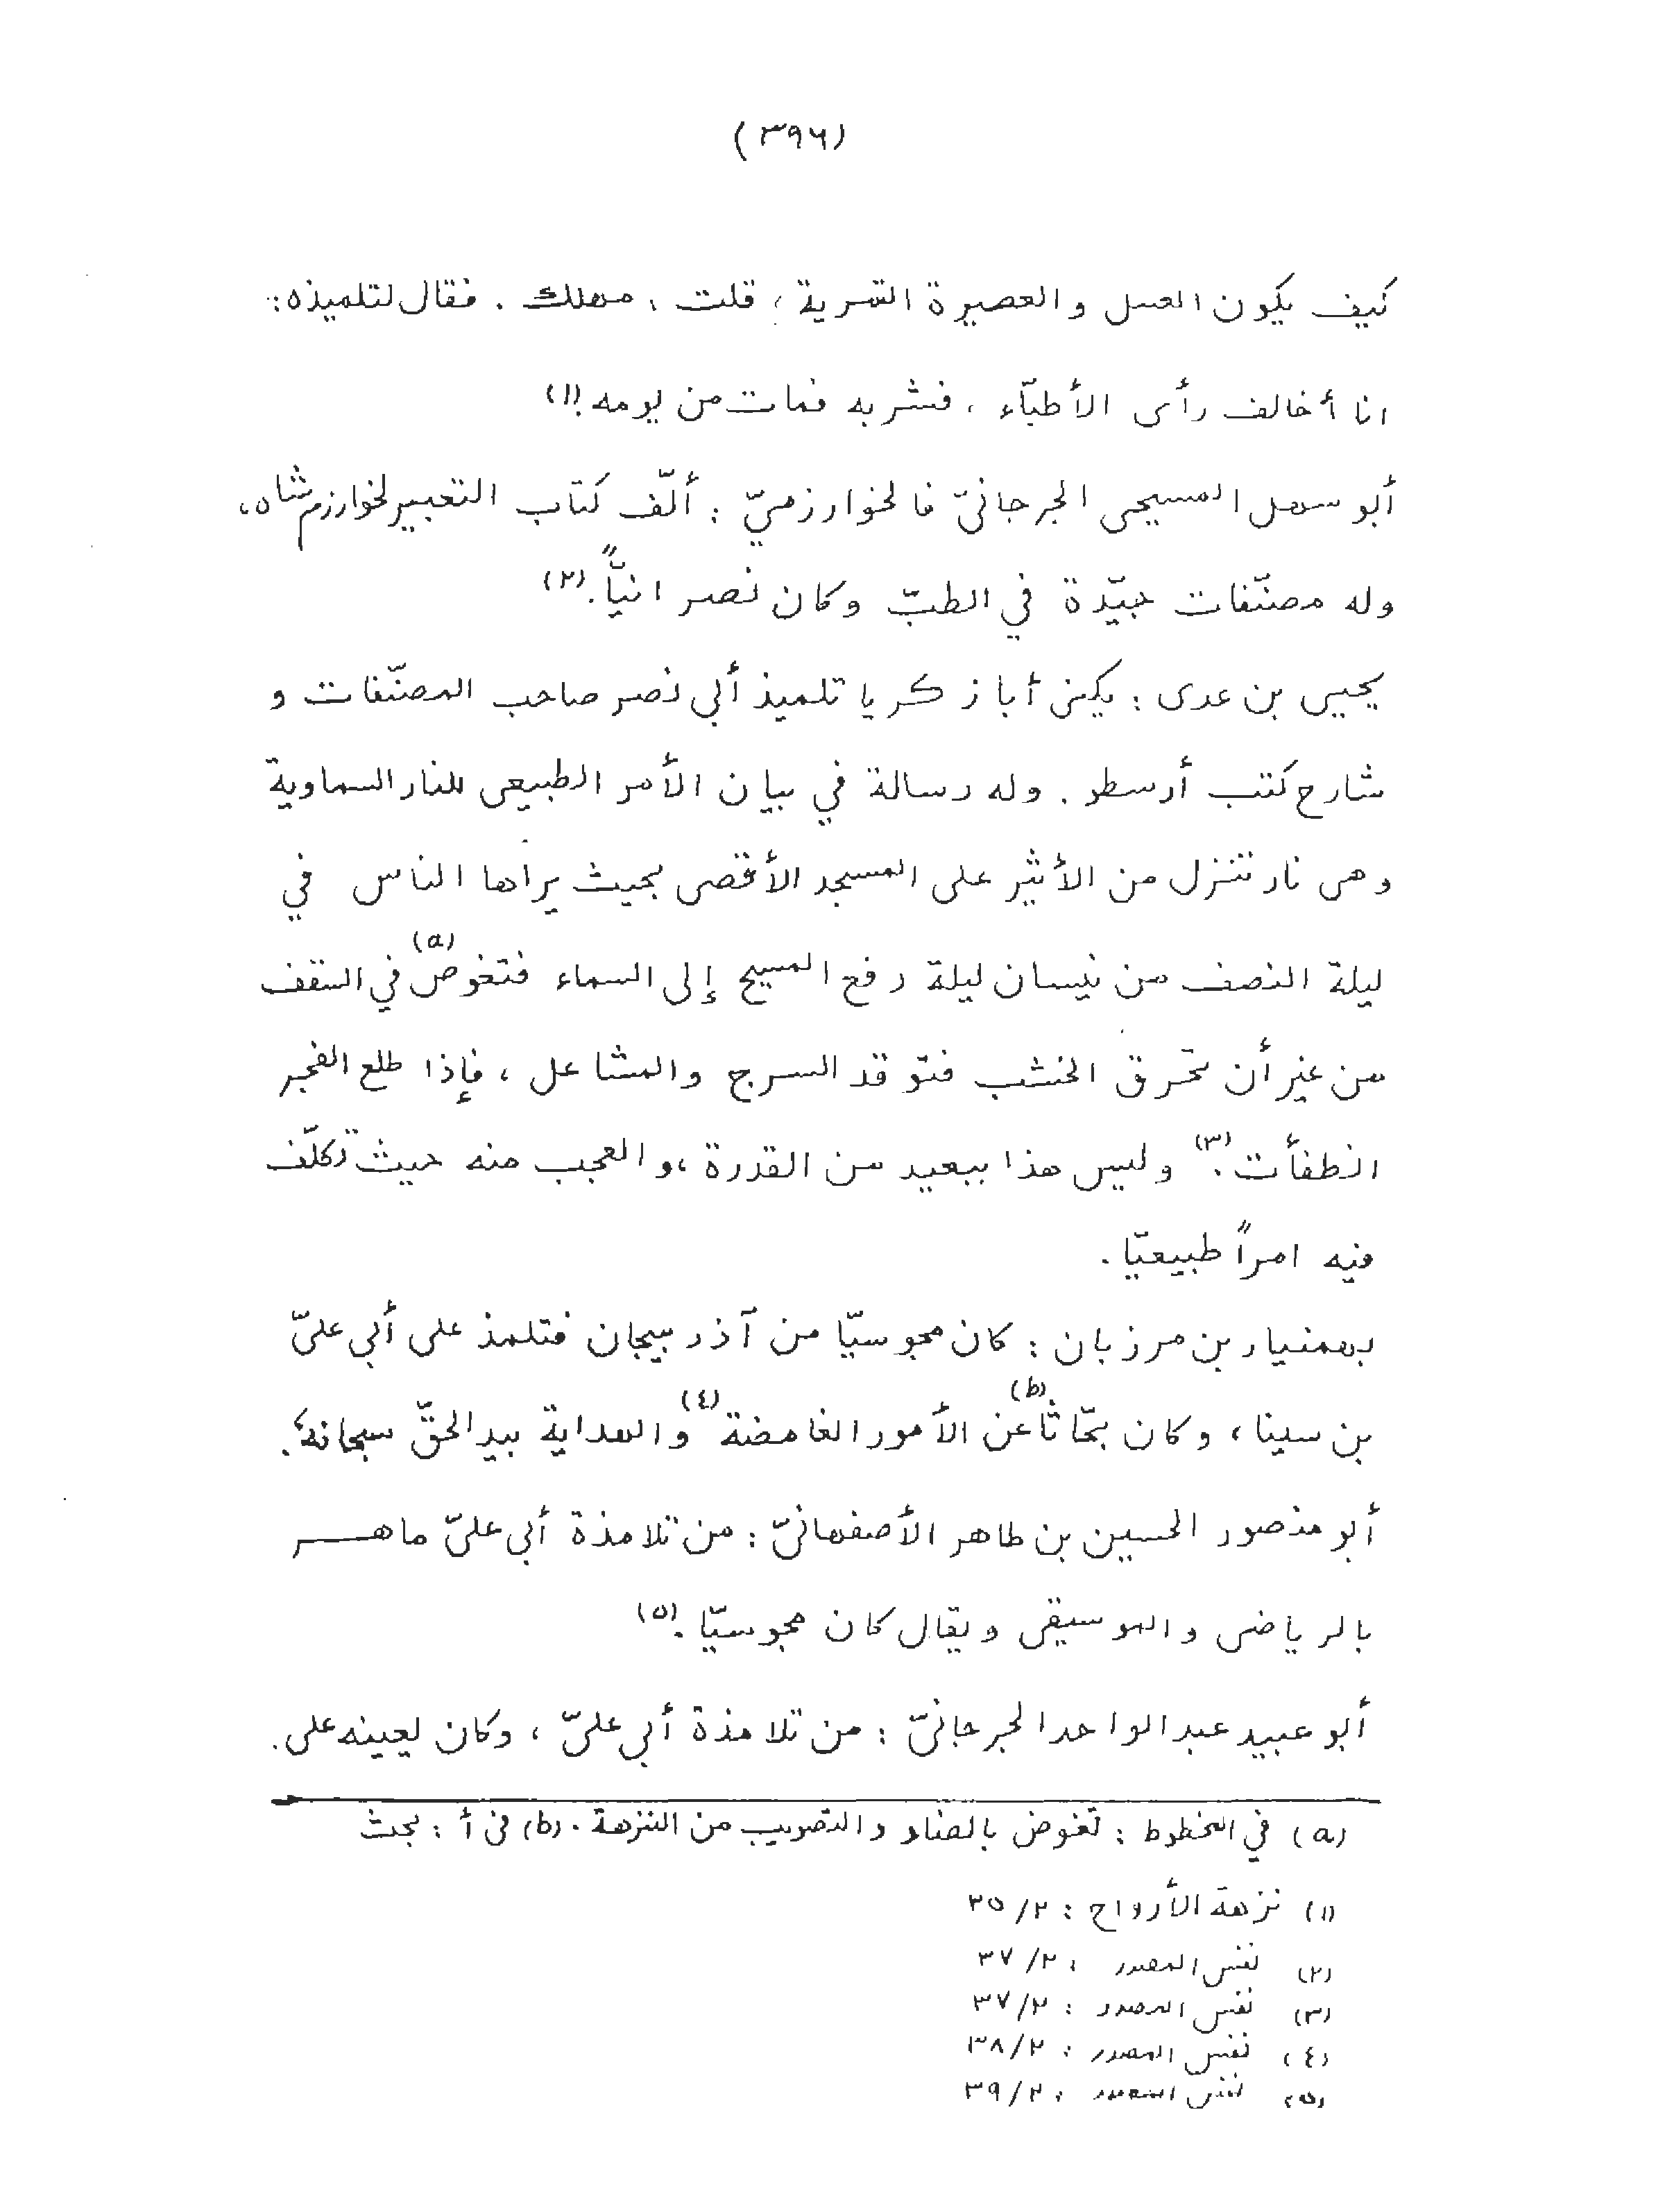 (٣٩٦)
كيف يكون العسل والعصيرة التمرية؛ قلت، مهلك. فقال لتلميذه:
انا أخالف رأى الأطبّاء، فشربه فمات من يومه.(١)
أبو سهل المسيحى الجرجانىّ فالخوارزميّ: ألّف كتاب التعبير لخوارزم شاه،
وله مصنّفات جيّدة في الطبّ وكان نصرانيّاً.(٢)
يحيى بن عدى: يكنى أبا زكريا تلميذ أبي نصر صاحب المصنّفات و
شارح كتب أرسطو. وله رسالة في بيان الأمر الطبيعى للنار السماوية
وهى نار تنزل من الأثير على المسجد الأقصى بحيث يراها الناس في
ليلة النصف من نيسان ليلة رفع المسيح إلى السماء فتغوصّ(a) في السقف
من غير أن تحرق الخشب فتوقد السرج والمشاعل، فإذا طلع الفجر
انطفأت.(٣) وليس هذا ببعيد من القدرة، والعجب منه حيث تكلّف
فيه امراً طبيعيّا.
بهمنيار بن مرزبان: كان مجوسيّا من آذربيجان فتلمذ على أبي علىّ
بن سينا، وكان بحّاثا(b) عن الأمور الغامضة(٤) والهداية بيد الحقّ سبحانه.
أبو منصور الحسين بن طاهر الأصفهانىّ: من تلامذة أبي علىّ ماهر
بالرياضى والموسيقى ويقال كان مجوسيّا.(٥)
أبو عبيد عبد الواحد الجرجانىّ: من تلامذة أبي علىّ، وكان يعينه على.
(a) في المخطوط: تغوض بالضاد والتصويب من النزهة. (b) فى أ: بحث
(١) نزهة الأرواح: ٣٥/٢
(٢) نفس المصدر: ٣٧/٢
(٣) نفس المصدر: ٣٧/٢
(٤) نفس المصدر: ٣٨/٢
(٥) نفس المصدر: ٣٩/٢